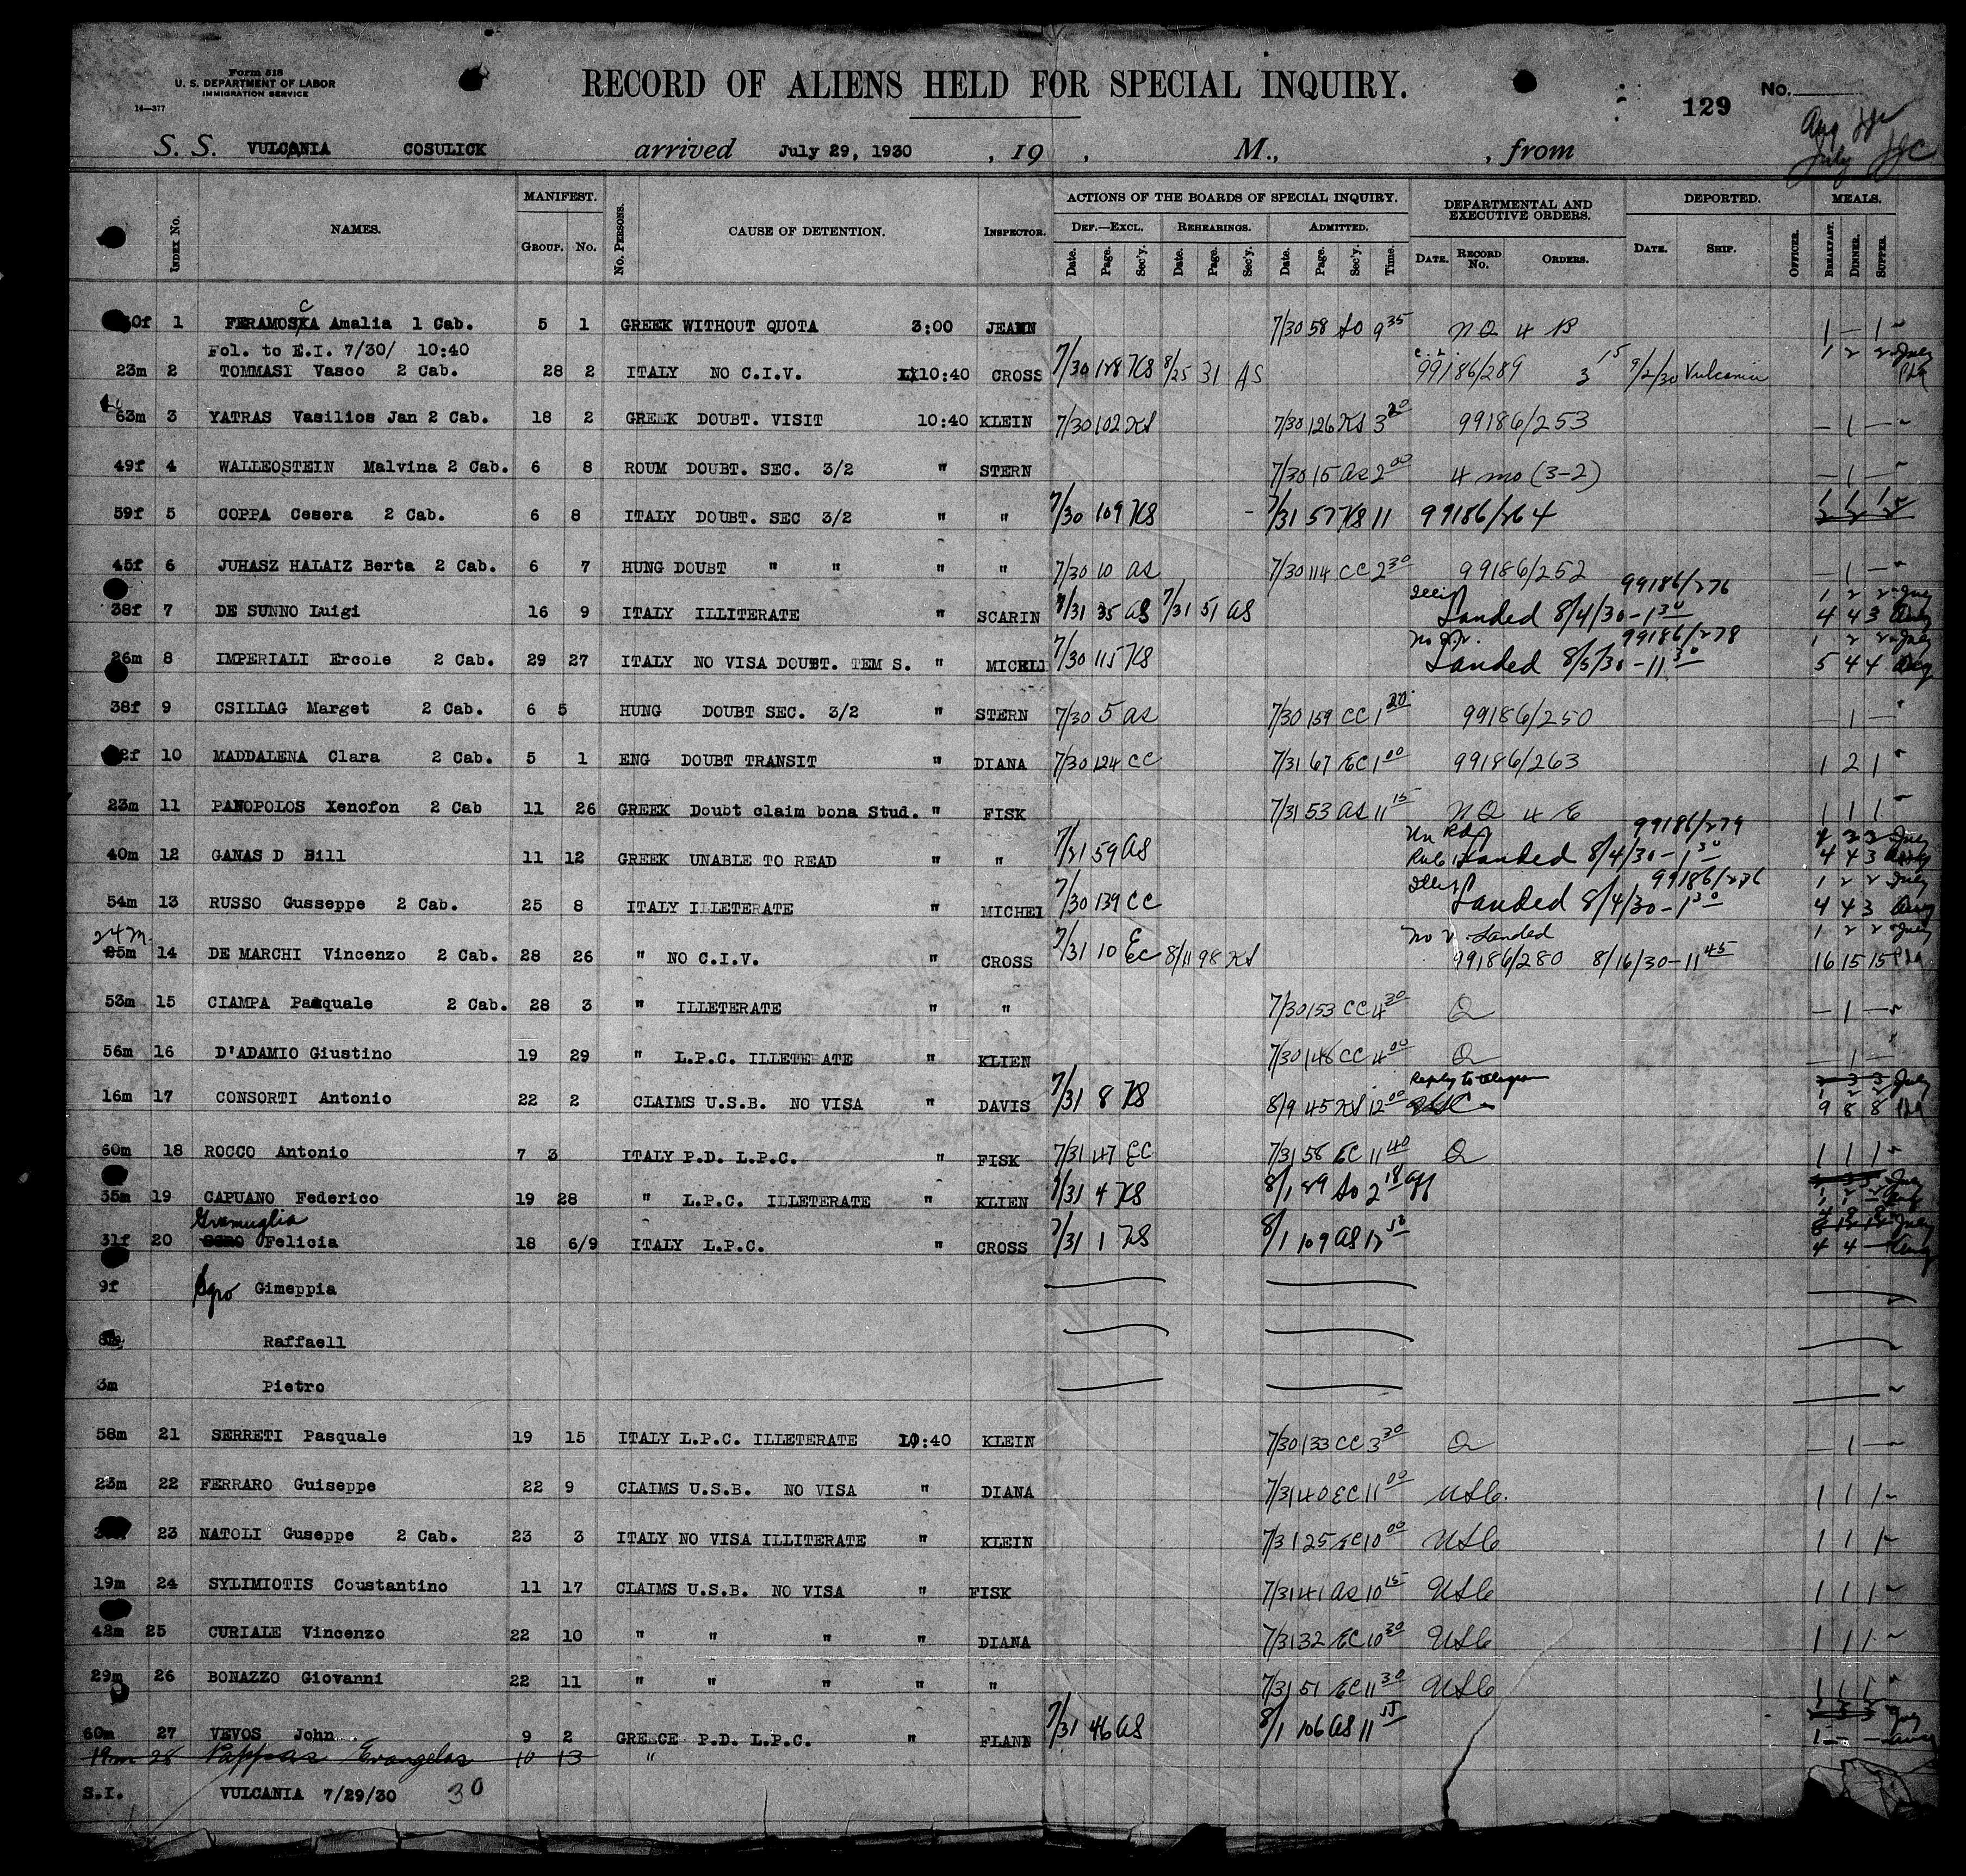 Form 518
U. S. DEPARTMENT OF LABOR
IMMIGRATION SERVICE
14—377
RECORD OF ALIENS HELD FOR SPECIAL INQUIRY.
129 No.
Aug
July
S. S. VULCANIA COSULICK arrived July 29, 1930 , 19 , M., , from
INDEX No. NAMES. MANIFEST. GROUP. No. No. PERSONS. CAUSE OF DETENTION. INSPECTOR. ACTIONS OF THE BOARDS OF SPECIAL INQUIRY. DEPARTMENTAL AND EXECUTIVE ORDERS. DEPORTED. MEALS.
DEF.—EXCL. REHEARINGS. ADMITTED.
Date. Page. Sec'y. Date. Page. Sec'y. Date. Page. Sec'y. Time. DATE. RECORD No. ORDERS. DATE. SHIP. OFFICER. BREAKFAST. DINNER. SUPPER.
1 FERAMOSKA Amalia 1 Cab. 5 1 GREEK WITHOUT QUOTA 3:00 7/30 58 9 35 NQ 4 1 — 1
Fol. to E.I. 7/30/ 10:40
23m 2 TOMMASI Vasco 2 Cab. 28 2 ITALY NO C.I.V. 10:40 CROSS 7/30 128 KS 8/25 31 AS 99186/289 3 15 9/2/30 Vulcania 1 2 2 July
63m 3 YATRAS Vasilios Jan 2 Cab. 18 2 GREEK DOUBT. VISIT 10:40 KLEIN 7/30 102 KS 7/30 126 KS 3 20 99186/253 — 1 —
49f 4 WALLEOSTEIN Malvina 2 Cab. 6 8 ROUM DOUBT. SEC. 3/2 " STERN 7/30 15 as 2 00 4 mo (3-2) — 1 —
59f 5 COPPA Cesera 2 Cab. 6 8 ITALY DOUBT. SEC 3/2 " " 7/30 109 KS 7/31 57 KS 11 99186/264
45f 6 JUHASZ HALAIZ Berta 2 Cab. 6 7 HUNG DOUBT " " " " 7/30 10 as 7/30 114 CC 2 30 99186/252 — 1 —
38f 7 DE SUNNO Luigi 16 9 ITALY ILLITERATE " SCARIN 7/31 35 as 7/31 51 as Landed 8/4/30 - 1 30 99186/276 1 2 2 July 4 4 3 Aug
26m 8 IMPERIALI Ercole 2 Cab. 29 27 ITALY NO VISA DOUBT. TEM S. " 7/30 115 KS Landed 8/5/30 - 11 30 99186/278 1 2 2 July 5 4 4 Aug
38f 9 CSILLAG Marget 2 Cab. 6 5 HUNG DOUBT SEC. 3/2 " STERN 7/30 5 as 7/30 159 CC 1 20 99186/250 — 1 —
10 MADDALENA Clara 2 Cab. 5 1 ENG DOUBT TRANSIT " DIANA 7/30 124 CC 7/31 67 EC 1 00 99186/263 1 2 1
23m 11 PANOPOLOS Xenofon 2 Cab 11 26 GREEK Doubt claim bona Stud. " FISK 7/31 53 as 11 15 NQ 4 E 1 1 1
40m 12 GANAS D Bill 11 12 GREEK UNABLE TO READ " " 59 as Landed 8/4/30 - 1 30 99186/279 4 4 3 Aug
54m 13 RUSSO Gusseppe 2 Cab. 25 8 ITALY ILLETERATE " MICHEL 7/30 139 CC Landed 8/4/30 - 1 30 1 2 2 July 4 4 3 Aug
24m
25m 14 DE MARCHI Vincenzo 2 Cab. 28 26 " NO C.I.V. " CROSS 7/31 10 EC 8/11 98 KS No v. Landed 99186/280 8/16/30 - 11 45 1 2 2 July 16 15 15
53m 15 CIAMPA Pasquale 2 Cab. 28 3 " ILLETERATE " " 7/30 153 CC 4 30 Q — 1 —
56m 16 D'ADAMIO Giustino 19 29 " L.P.C. ILLETERATE " KLIEN 7/30 146 CC 4 00 Q — 1 —
16m 17 CONSORTI Antonio 22 2 CLAIMS U.S.B. NO VISA " DAVIS 7/31 8 KS 8/9 45 KS 12 00 Reply to 9 8 8
60m 18 ROCCO Antonio 7 3 ITALY P.D. L.P.C. " FISK 7/31 47 EC 7/31 58 EC 11 40 Q 1 1 1
35m 19 CAPUANO Federico 19 28 " L.P.C. ILLETERATE " KLIEN 7/31 4 KS 8/1 89 2 18
Gramuglia
31f 20 SGRO Felicia 18 6/9 ITALY L.P.C. " CROSS 7/31 1 KS 8/1 109 as 12 4 4 — Aug
9f Sgro Gimeppia
Raffaell
3m Pietro
58m 21 SERRETI Pasquale 19 15 ITALY L.P.C. ILLETERATE 10:40 KLEIN 7/30 133 CC 3 30 Q — 1 —
23m 22 FERRARO Guiseppe 22 9 CLAIMS U.S.B. NO VISA " DIANA 7/31 40 EC 11 00 USC. 1 1 1
23 NATOLI Guseppe 2 Cab. 23 3 ITALY NO VISA ILLITERATE " KLEIN 7/31 25 EC 10 00 USC 1 1 1
19m 24 SYLIMIOTIS Coustantino 11 17 CLAIMS U.S.B. NO VISA " FISK 7/31 41 as 10 15 USC 1 1 1
42m 25 CURIALE Vincenzo 22 10 " " " " DIANA 7/31 32 EC 10 30 USC 1 1 1
29m 26 BONAZZO Giovanni 22 11 " " " " " 7/31 51 EC 11 30 USC 1 1 1
60m 27 VEVOS John 9 2 GREECE P.D. L.P.C. " FLANN 7/31 46 as 8/1 106 as 11 55
19m 28 Pappas Evangelos 10 13 "
S.I. VULCANIA 7/29/30 30